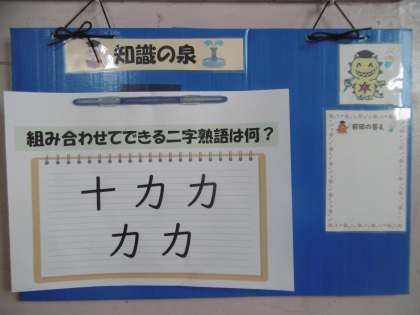 知識の泉
組み合わせてできる二字熟語は何？
十 カ カ
カ カ
前回の答え